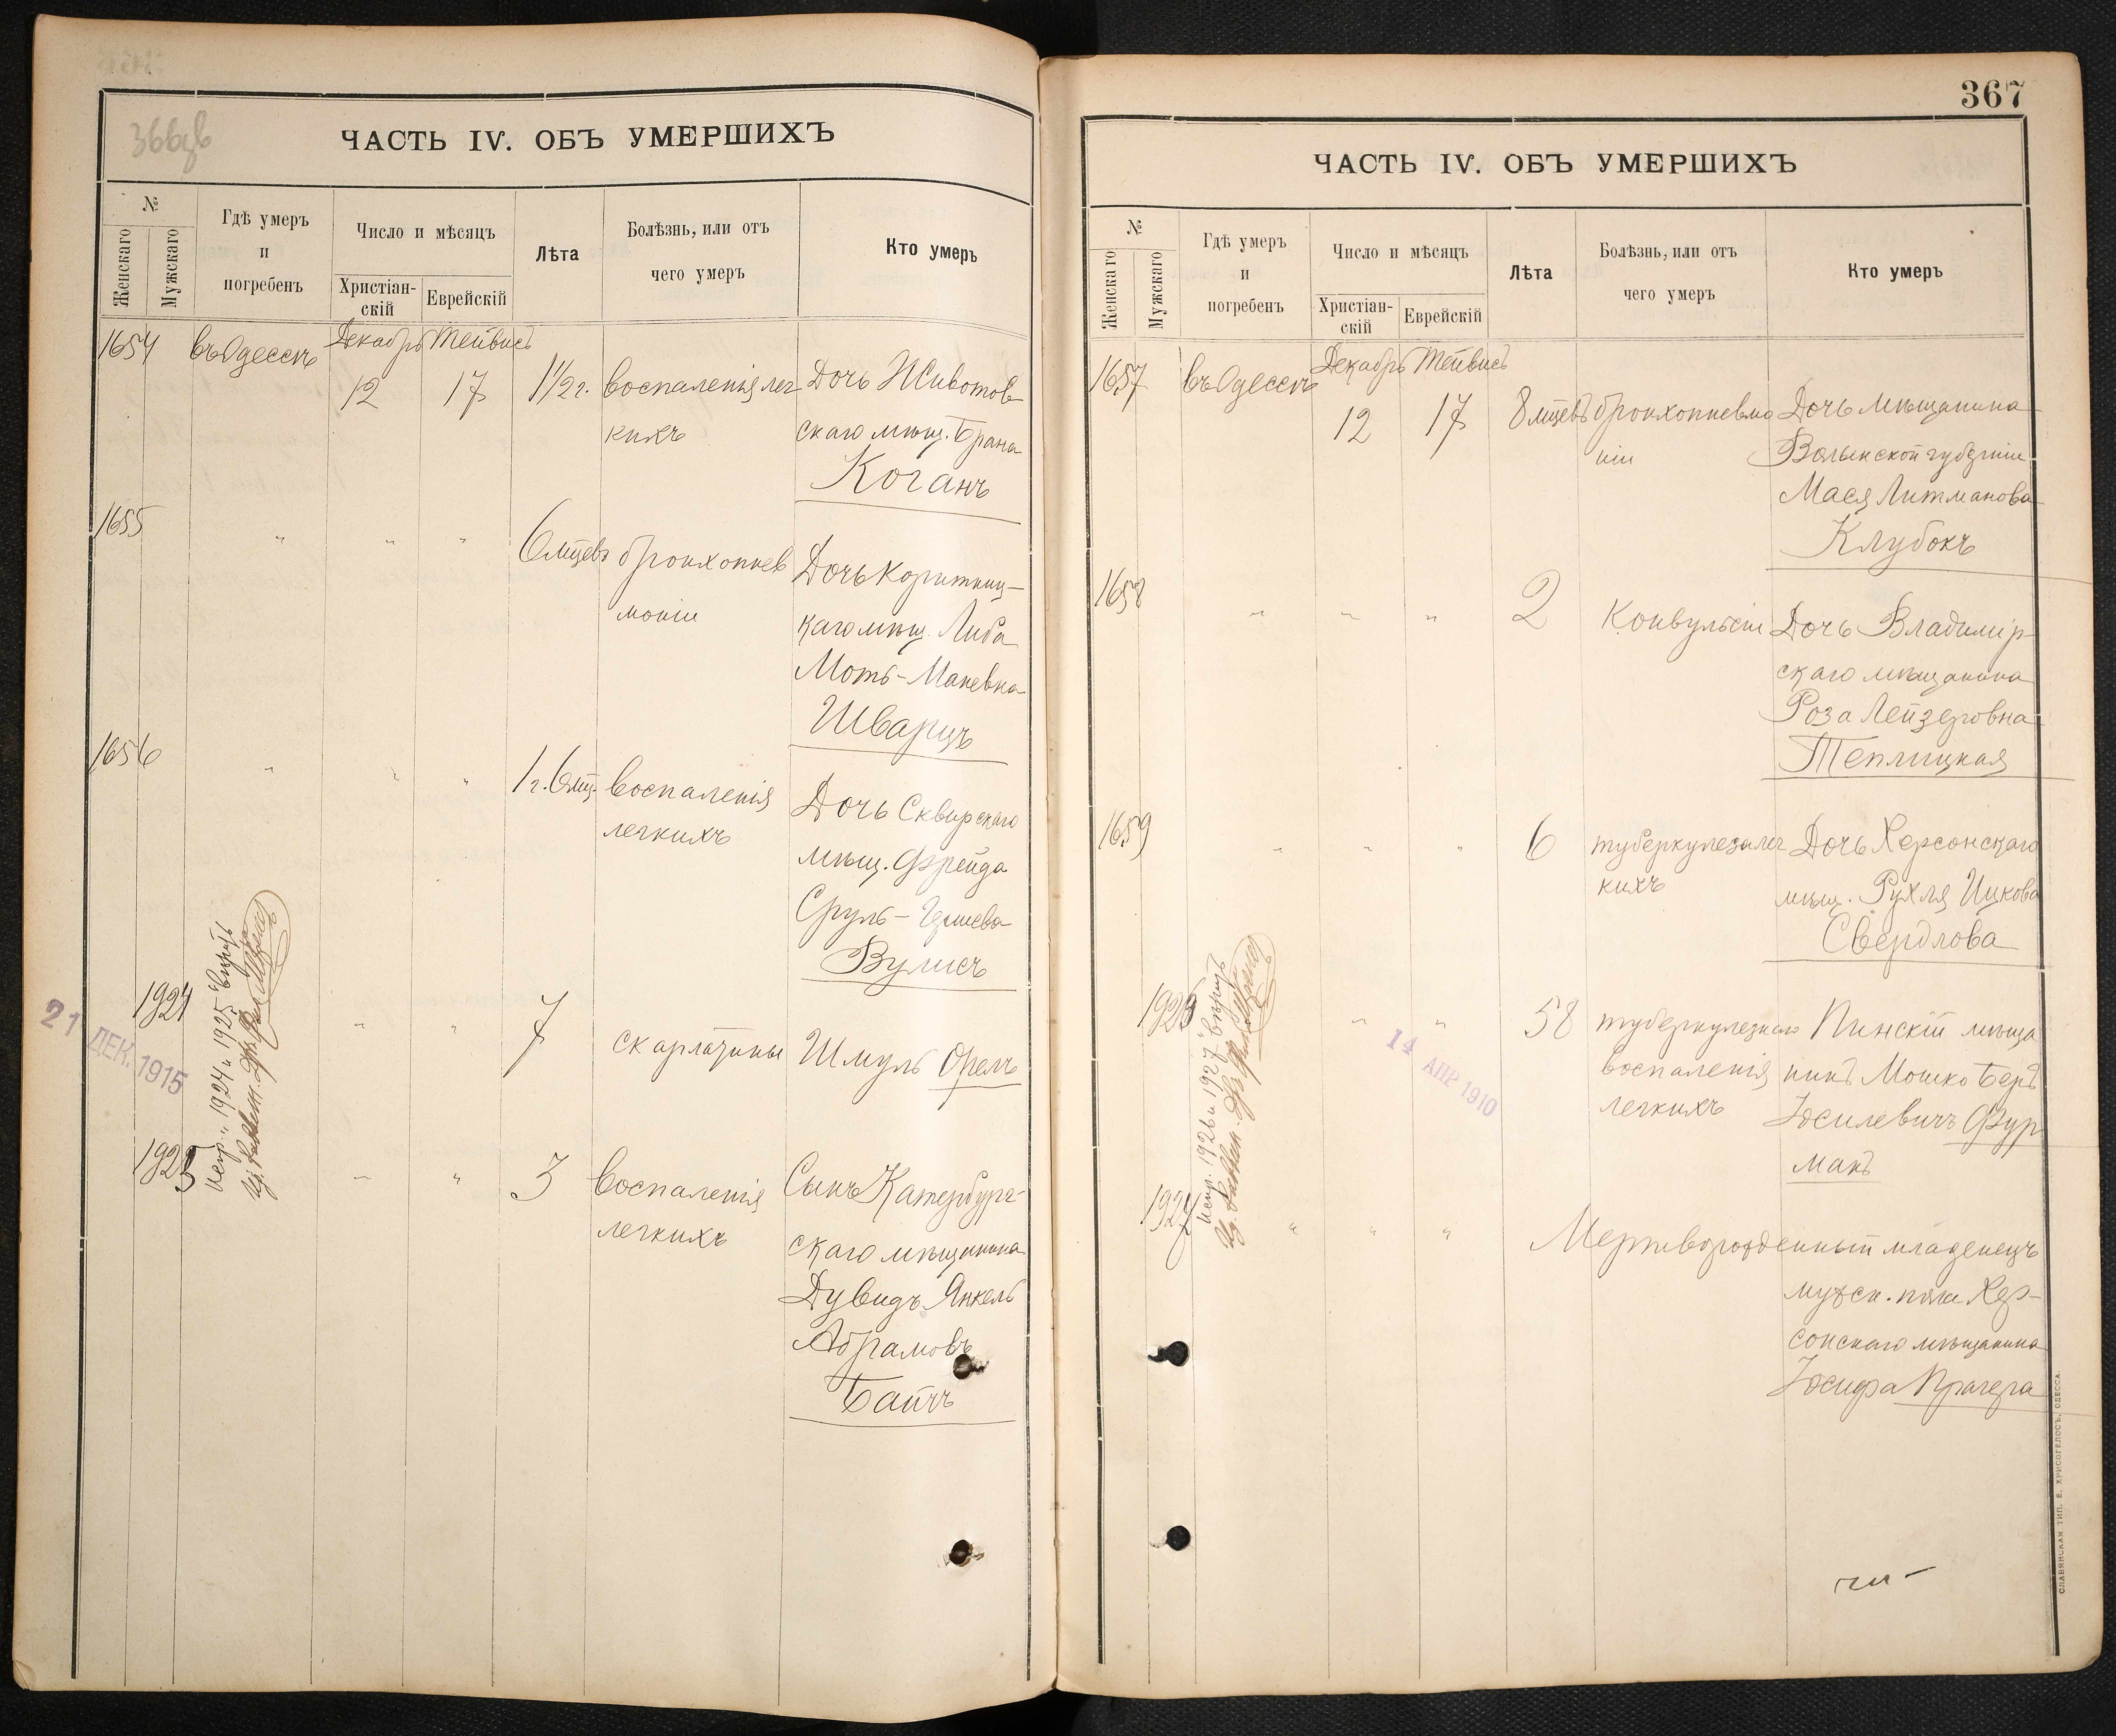 366 об
ЧАСТЬ IV. ОБЪ УМЕРШИХЪ
№
Женскаго
Мужскаго
Гдѣ умеръ
и
погребенъ
Число и мѣсяцъ
Христіан-
скій
Еврейскій
Лѣта
Болѣзнь, или отъ
чего умеръ
Кто умеръ
1654 въ Одессѣ Декабрь Тейвисъ
12 17 1 1/2 г. воспаленія лег Дочь Животов
кихъ скаго мѣщ. Брана
Коганъ
1655 " " " 6 мцевъ бронхопнев Дочь Коритниц-
моніи каго мѣщ. Либа
Моть-Маневна
Шварцъ
1656 " " " 1 г. 6 мц. воспаленія Дочь Сквирскаго
легкихъ мѣщ. Фрейда
Сруль-Гершева
Вулисъ
1924 " " 7 скарлатины Шмуль Орелъ
1925 " " 3 воспаленія Сынъ Катербург-
легкихъ скаго мѣщанина
Дувидъ Янкель
Абрамовъ
Байчъ
Испр. "1924 и 1925" вѣрно
21 ДЕК. 1915
367
ЧАСТЬ IV. ОБЪ УМЕРШИХЪ
№
Женскаго
Мужскаго
Гдѣ умеръ
и
погребенъ
Число и мѣсяцъ
Христіан-
скій
Еврейскій
Лѣта
Болѣзнь, или отъ
чего умеръ
Кто умеръ
1657 въ Одессѣ Декабрь Тейвисъ
12 17 8 мцевъ бронхопневмо Дочь мѣщанина
ніи Волынской губерніи
Мася Литманова
Клубокъ
1658 " " " 2 Конвульсіи Дочь Владимір-
скаго мѣщанина
Роза Лейзеровна
Теплицкая
1659 " " " 6 туберкулеза лег Дочь Херсонскаго
кихъ мѣщ. Рухля Ицкова
Свердлова
1926 " " 58 туберкулезнаго Пинскій мѣща
воспаленія нинъ Мошко Беръ
легкихъ Іосилевичъ Фур
манъ
1927 " " " Мертворожденный младенецъ
мужск. пола Хер-
сонскаго мѣщанина
Іосифа Прагера
Испр. "1926 и 1927" вѣрно
14 АПР 1910
СЛАВЯНСКАЯ ТИП. Е. ХРИСОГЕЛОСЪ, ОДЕССА.